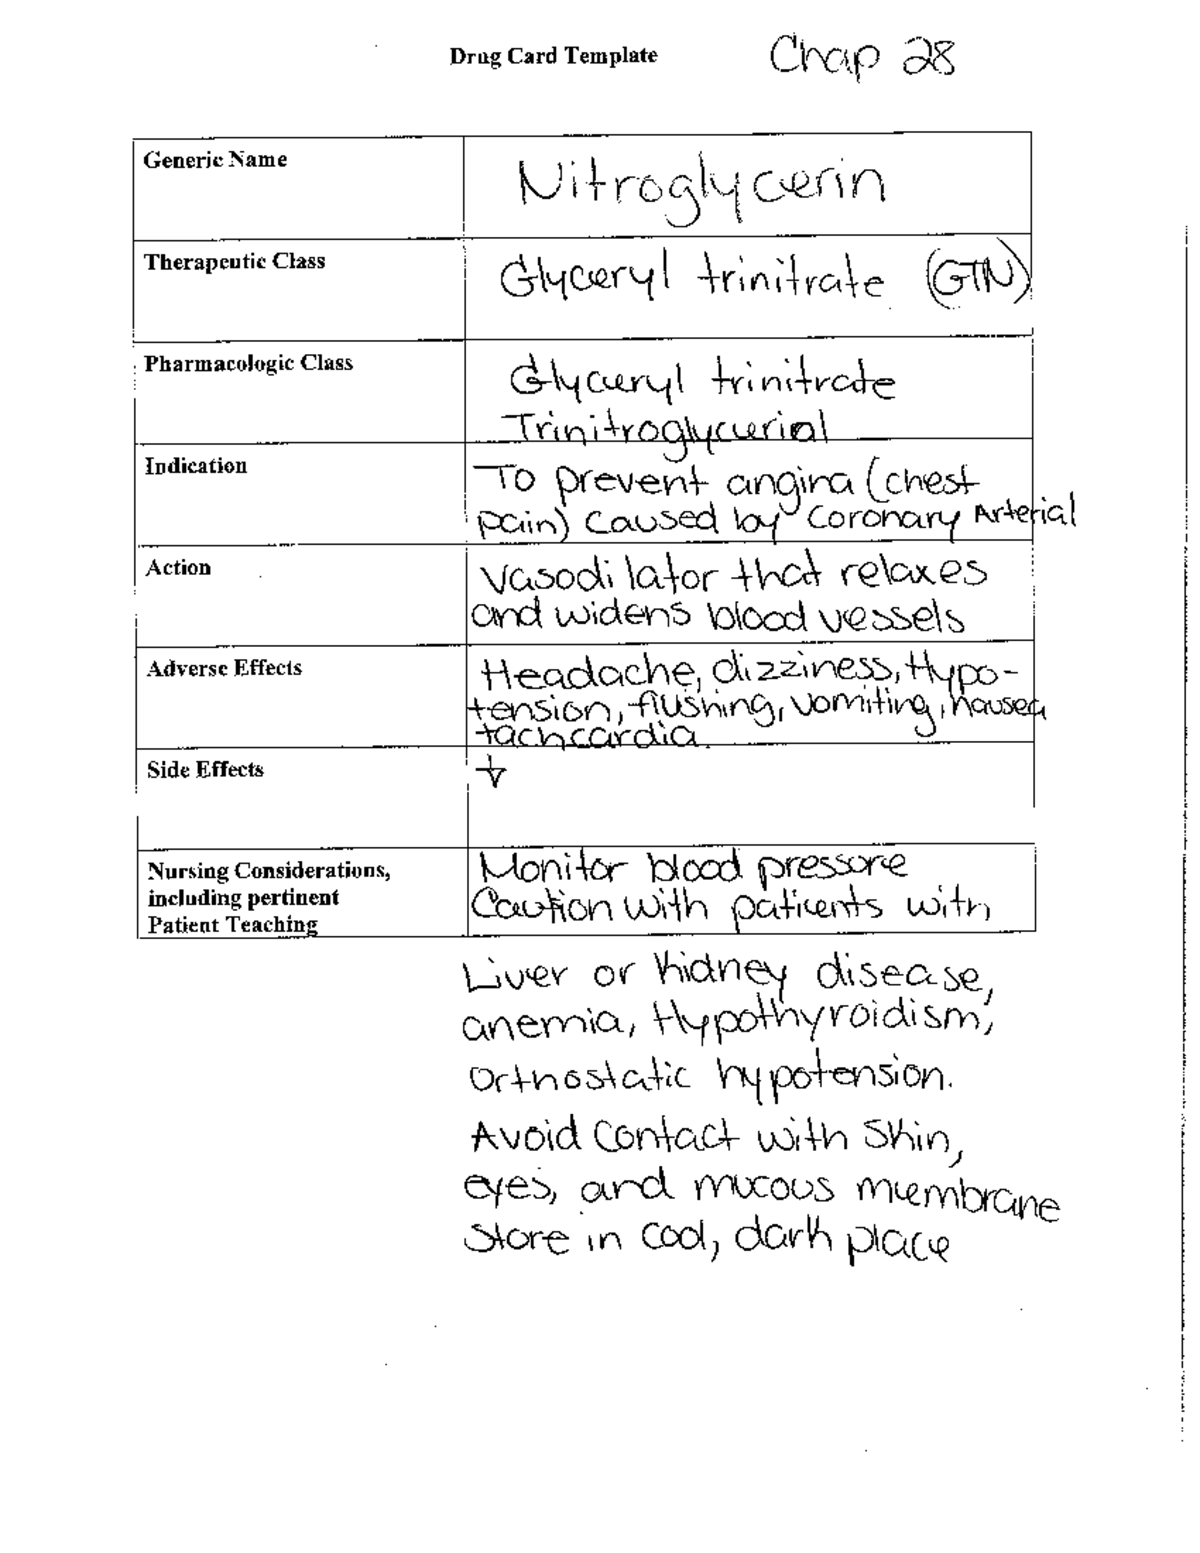 Drug Card Template Chap 28
Generic Name Nitroglycerin
Therapeutic Class Glyceryl trinitrate (GTN)
Pharmacologic Class Glyceryl trinitrate
Trinitroglycerial
Indication To prevent angina (chest
pain) caused by Coronary Arterial
Action Vasodilator that relaxes
and widens blood vessels
Adverse Effects Headache, dizziness, Hypo-
tension, flushing, vomiting, nausea
tachcardia.
Side Effects
Nursing Considerations, Monitor blood pressure
including pertinent Caution with patients with
Patient Teaching
Liver or Kidney disease,
anemia, Hypothyroidism,
Orthostatic hypotension.
Avoid Contact with Skin,
eyes, and mucous membrane
Store in cool, dark place